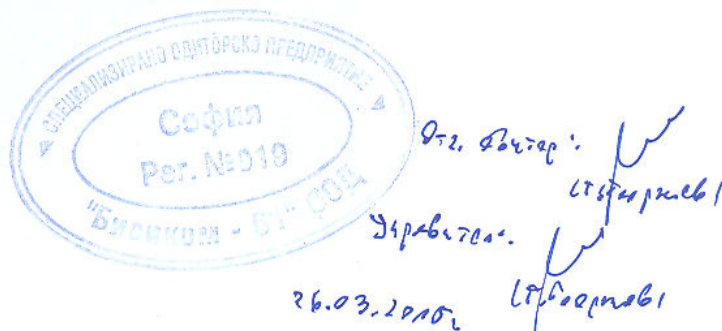 СПЕЦИАЛИЗИРАНО ОДИТОРСКО ПРЕДПРИЯТИЕ
София
Рег. №019
"Бисиком - 61" ООД
Отг. одитор:
Управител:
26.03.2010г.